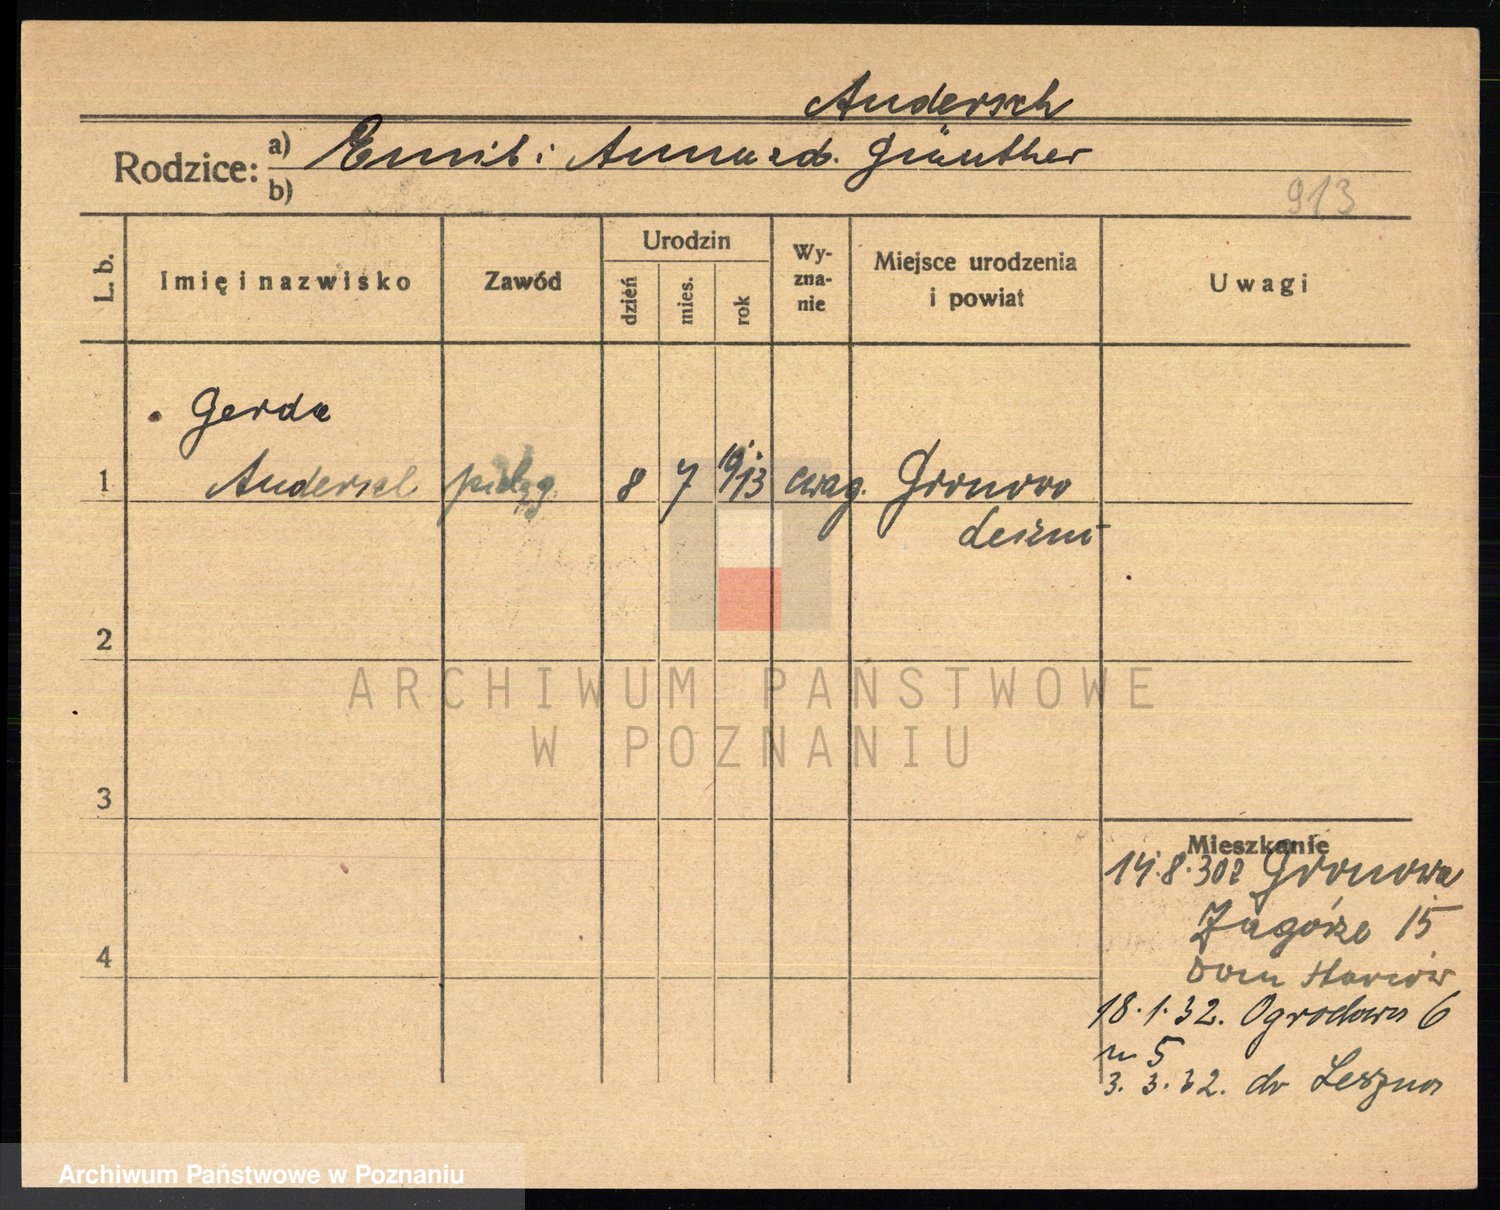 Andersch
Rodzice: a) Emil i Anna zd. Günther
b)
913
L. b. Imię i nazwisko Zawód Urodzin dzień mies. rok Wy-zna-nie Miejsce urodzenia i powiat Uwagi
Gerda
1 Andersch pielęg. 8 7 1913 ewag. Gronowo
Leszno
2
ARCHIWUM PAŃSTWOWE
W POZNANIU
3
Mieszkanie
14.8.30 z Gronowa
Zagórze 15
4 Dom
18.1.32. Ogrodowa 6
m 5
3.3.32. do Leszna
Archiwum Państwowe w Poznaniu